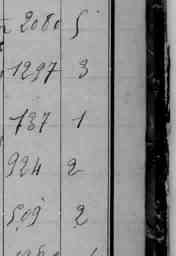 2080 5
1297 3
737 1
924 2
509 2